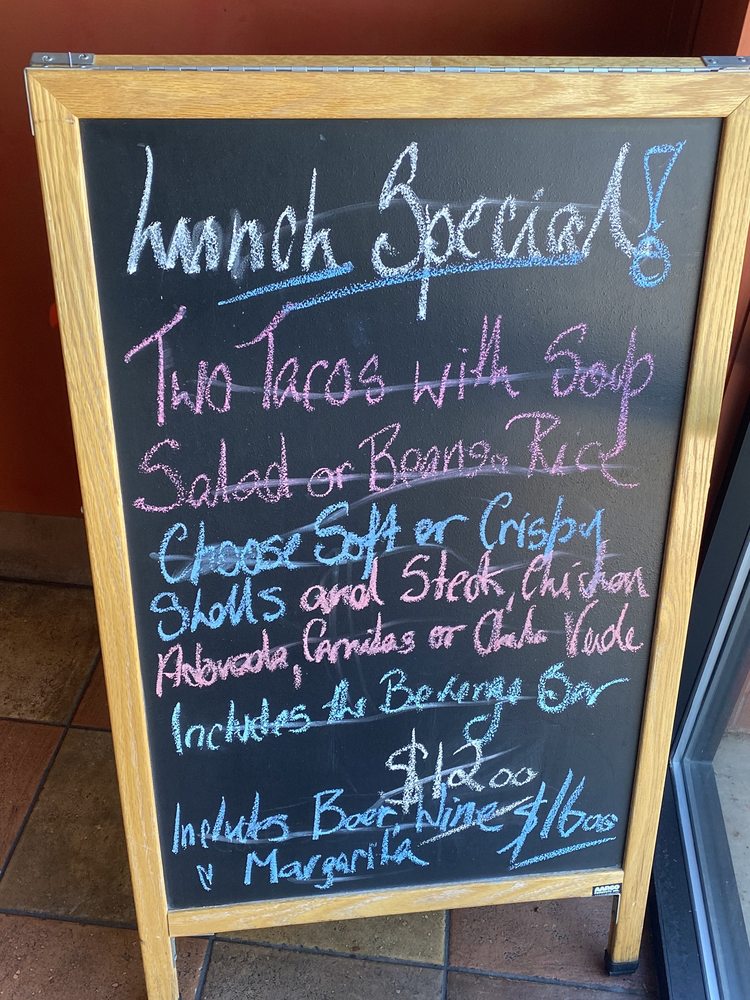 Lunch Special!
Two Tacos with Soup
Salad or Beans & Rice
Choose Soft or Crispy
Shells and Steak, Chicken
Adovada, Carnitas or Chile Verde
Includes the Beverage Bar
$12.00
Includes Beer, Wine $16.00
Margarita
AARCO